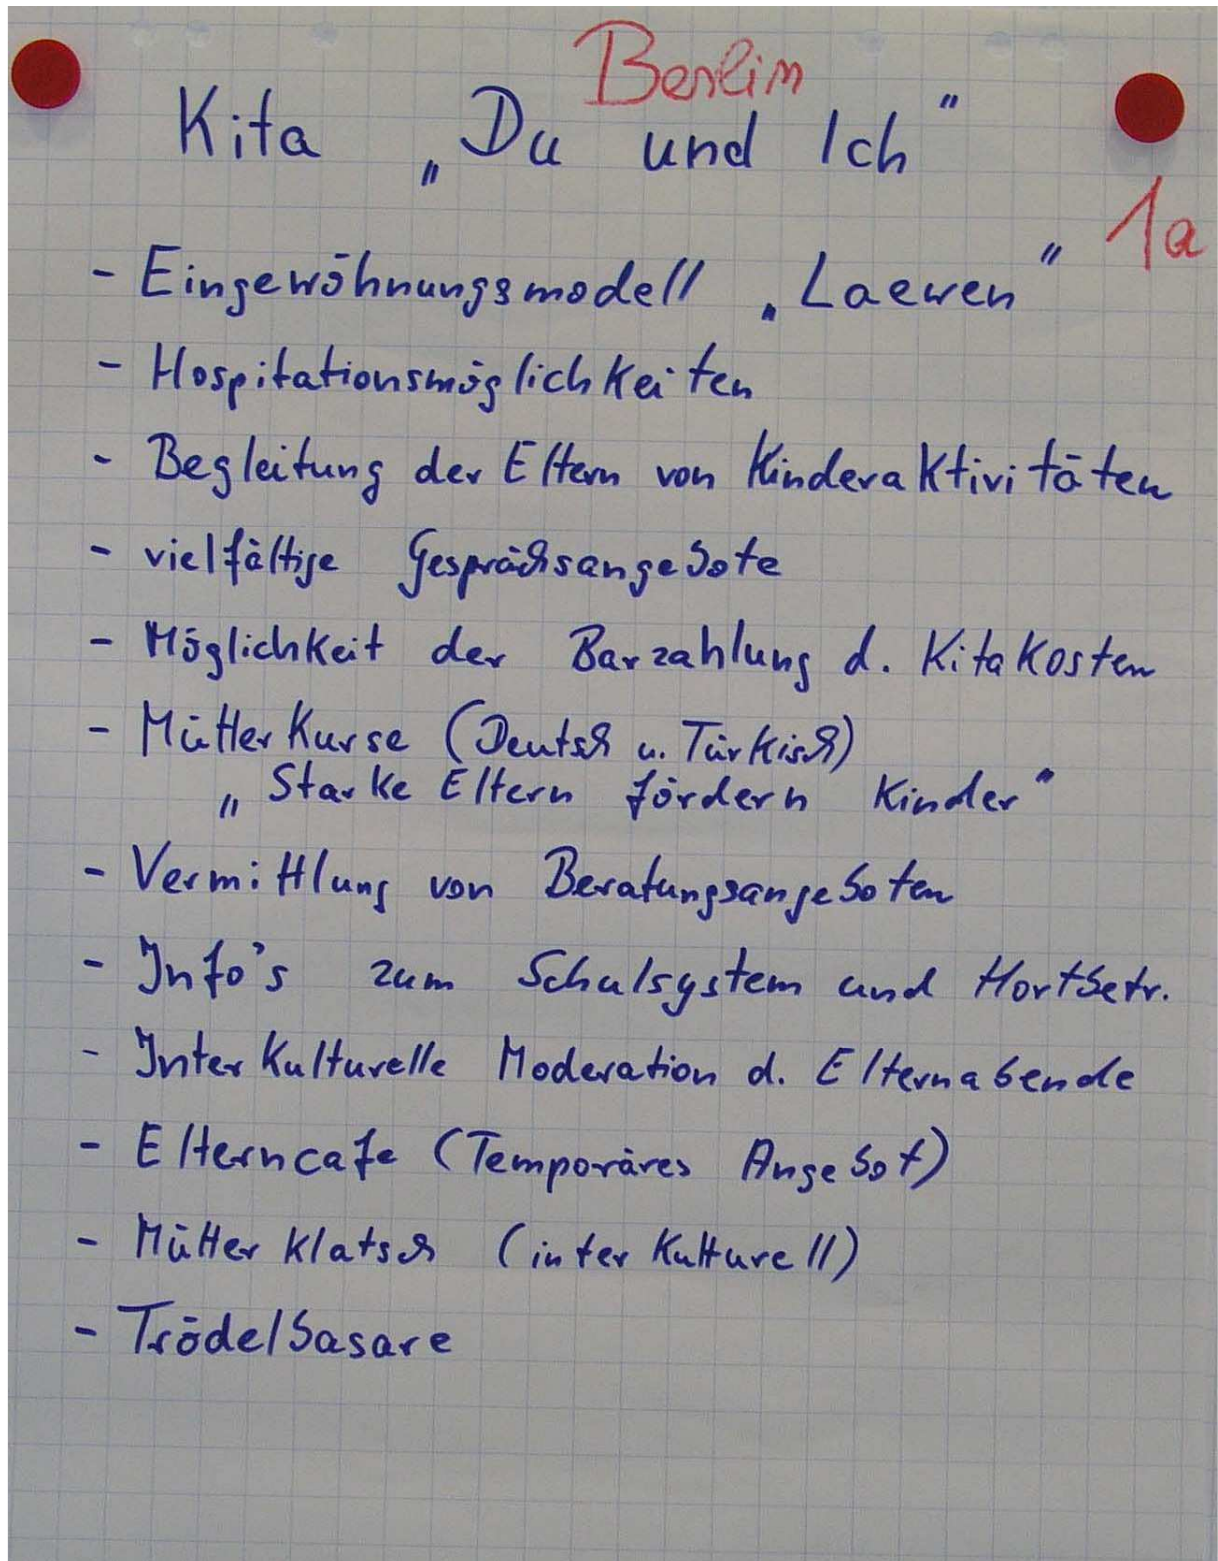 Berlin
Kita „Du und Ich“
1a
- Eingewöhnungsmodell „Laewen“
- Hospitationsmöglichkeiten
- Begleitung der Eltern von Kinderaktivitäten
- vielfältige Gesprächsangebote
- Möglichkeit der Barzahlung d. Kitakosten
- Mütterkurse (Deutsch u. Türkisch)
„Starke Eltern fördern Kinder“
- Vermittlung von Beratungsangeboten
- Info's zum Schulsystem und Hortbetr.
- Interkulturelle Moderation d. Elternabende
- Elterncafe (Temporäres Angebot)
- Mütterklatsch (interkulturell)
- Trödelbasare